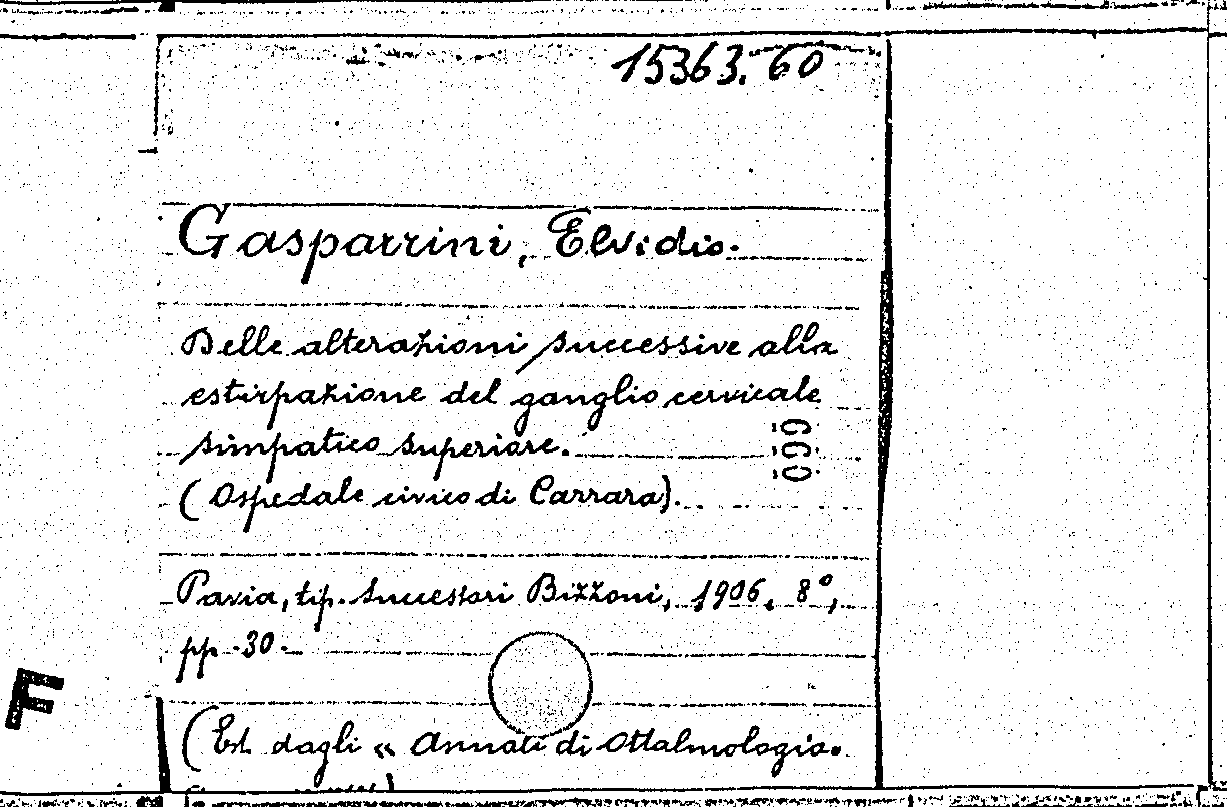 15363.60
Gasparrini, Elvidio.
Delle alterazioni successive alla
estirpazione del ganglio cervicale
simpatico superiore.
660
(Ospedale civico di Carrara).
Pavia, tip. Successori Bizzoni, 1906, 8°,
pp. 30.
(Est. dagli « Annali di Ottalmologia.
F